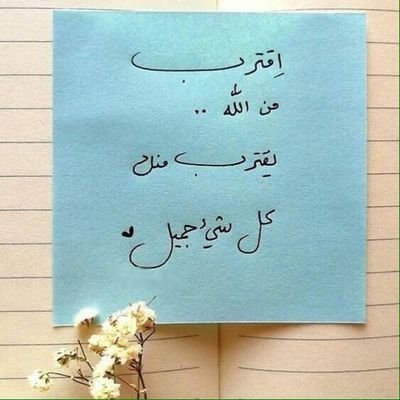 اِقترب
من اللّٰه ..
يقترب منك
كل شيء جميل ♥